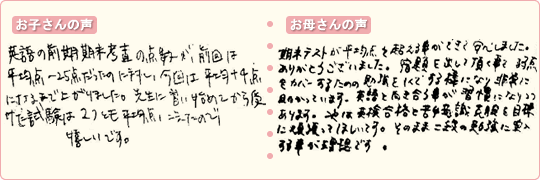 お子さんの声
英語の前期期末考査の点数が、前回は
平均点-25点だったのに対し、今回は平均+4点
にまで上がりました。先生に習い始めてから受
けた試験は2つとも平均点にいったので
嬉しいです。
お母さんの声
期末テストが平均点を超える事ができて安心しました。
ありがとうございました。宿題を出して頂く事で弱点
をカバーするための勉強をしてする様になり非常に
助かっています。英語と向き合う事が習慣になりつつ
あります。次は英検合格と苦手意識克服を目標
に頑張ってほしいです。そのまま二教の勉強に
る事が理想です。